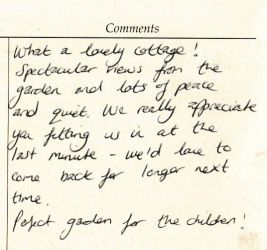 Comments
What a lovely cottage!
Spectacular views from the
garden and lots of peace
and quiet. We really appreciate
you fitting us in at the
last minute - we'd love to
come back for longer next
time.
Perfect garden for the children!